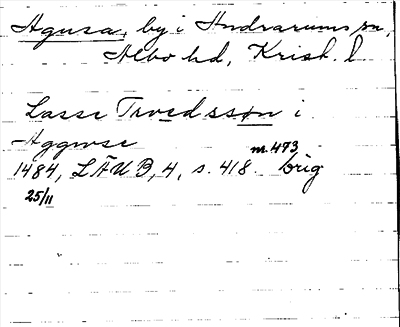 Agusa, by i Andrarums sn,
Albo hd, Krist. l.
Lasse Trvedssøn i
Aggwse nr. 473
1484, LÄUB, 4, s. 418. orig
25/11